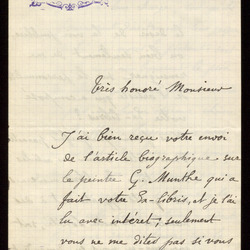 Très honoré Monsieur
J'ai bien reçu votre envoi
de l'article biographique sur
le peintre G. Munthe qui a
fait votre Ex-libris, et je l'ai
lu avec intéret, seulement
vous ne me dites pas si vous